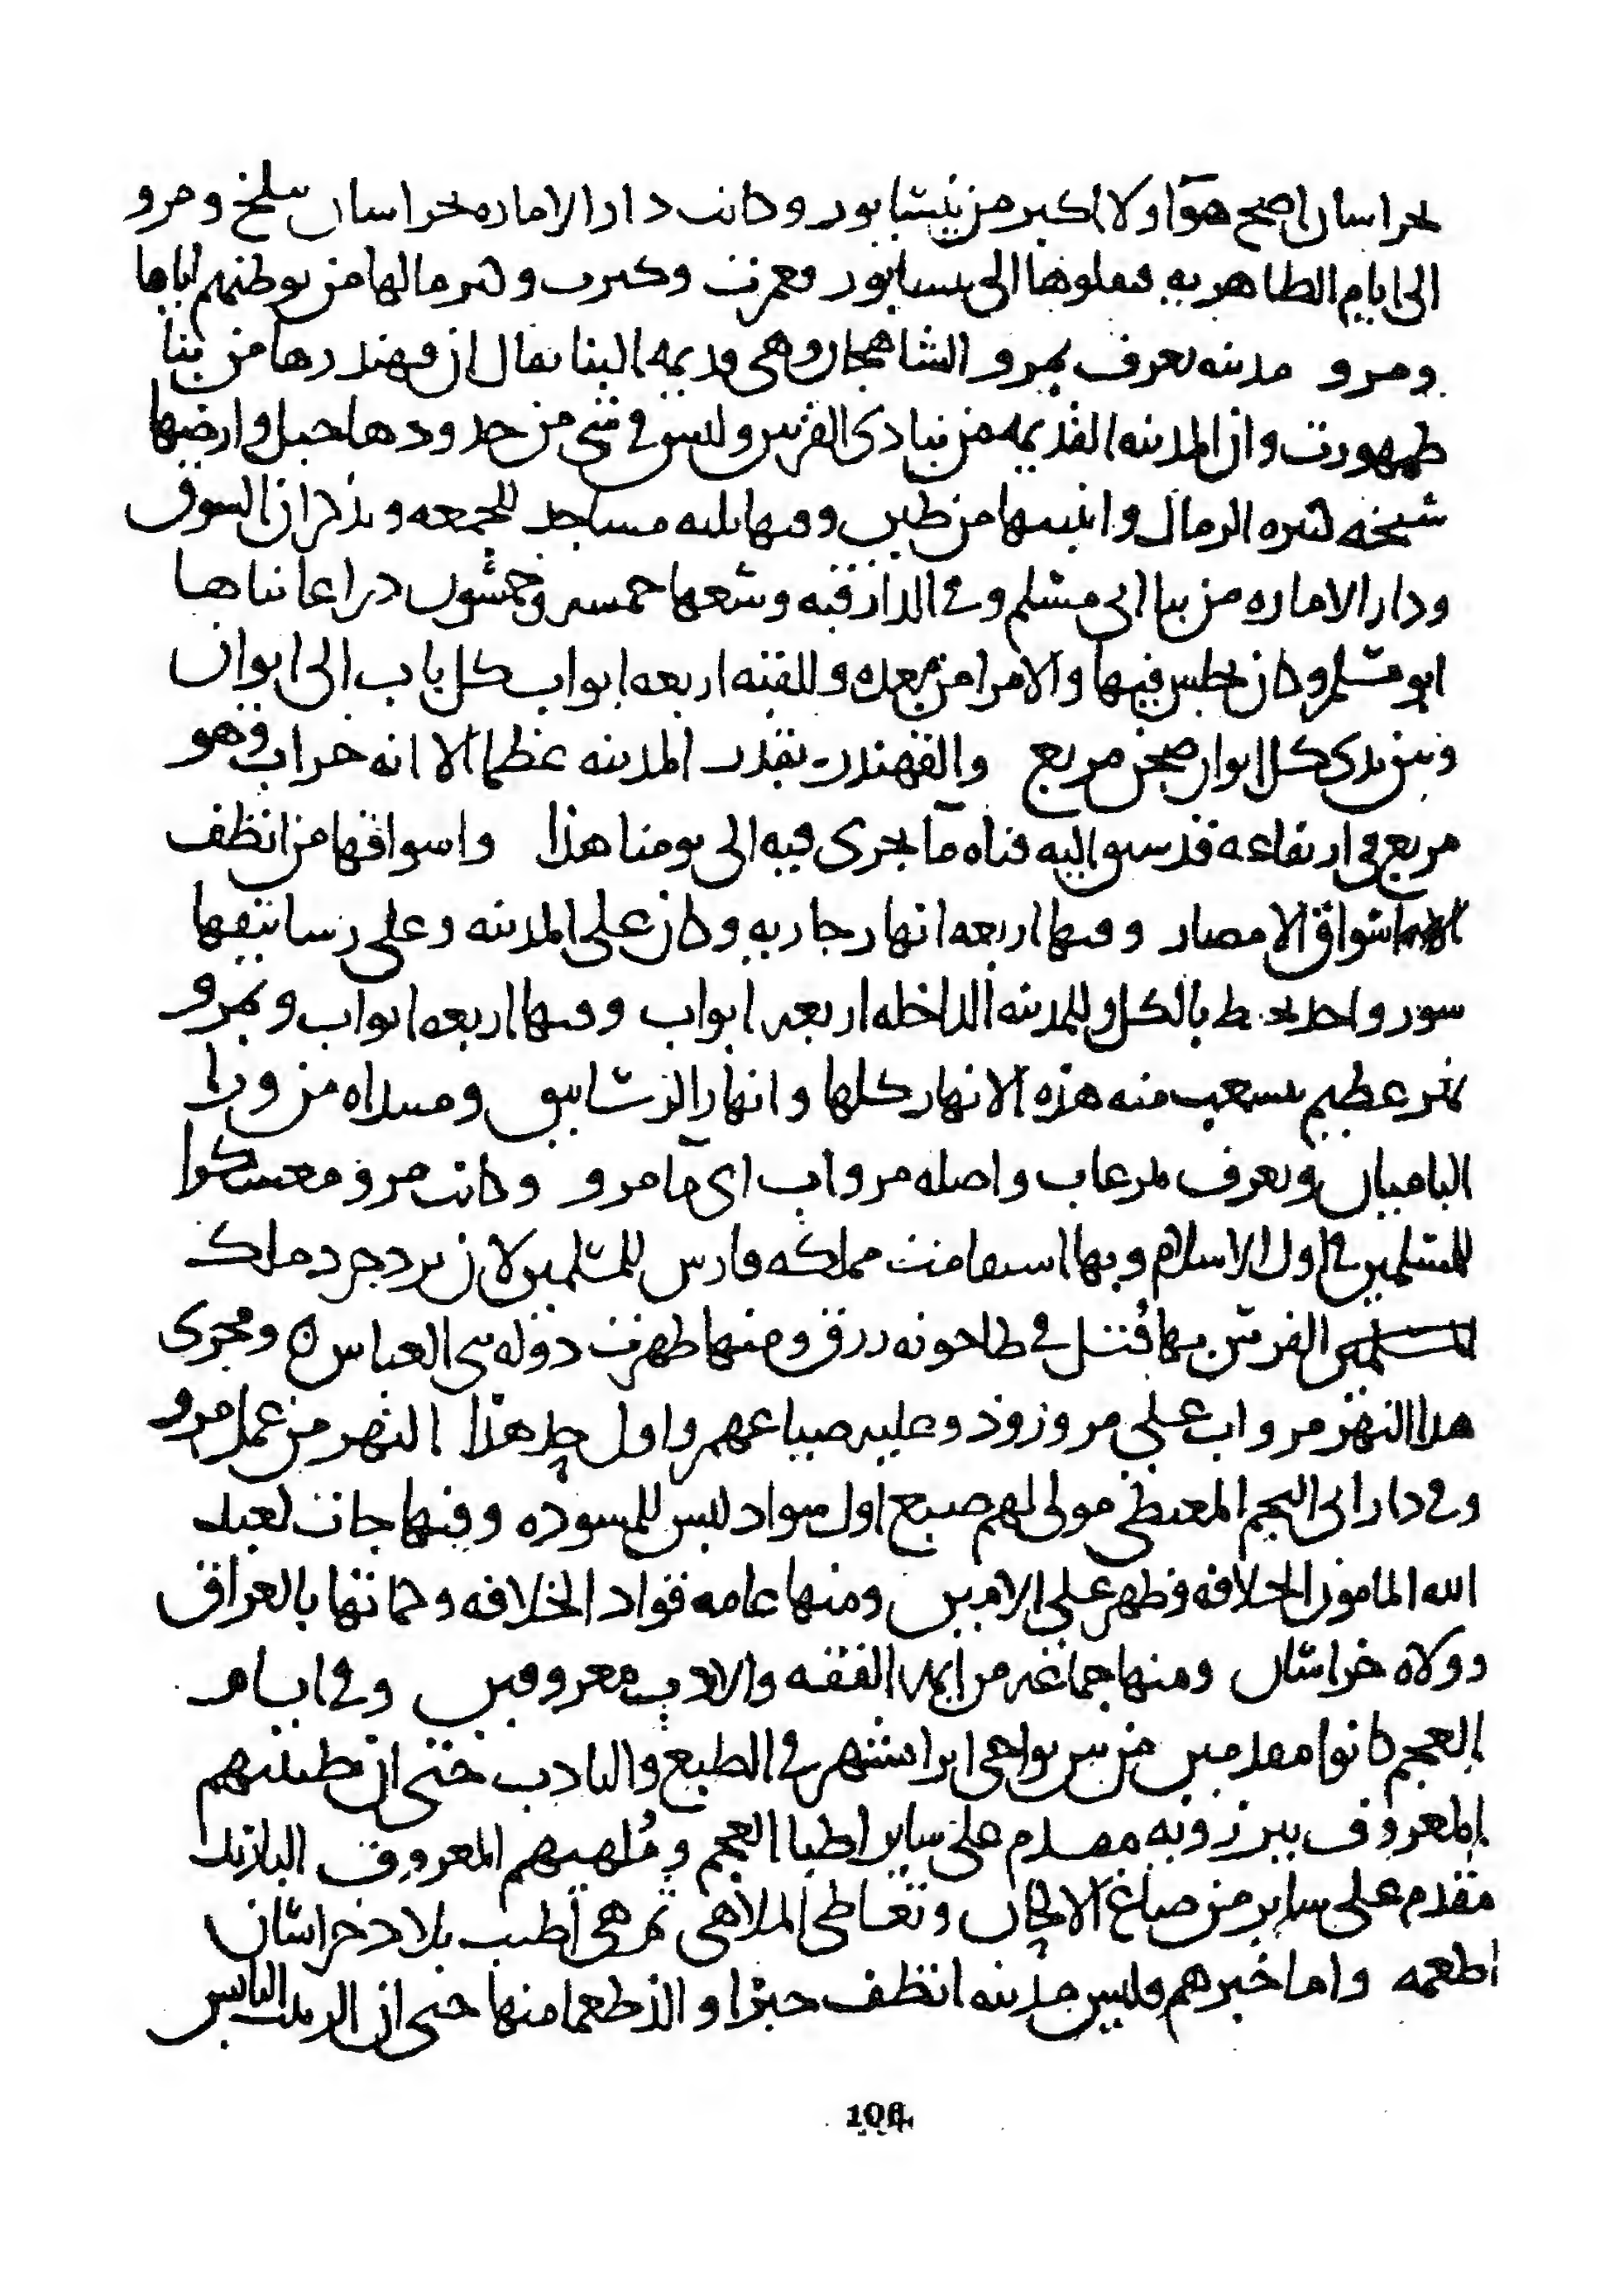 بخراسان اصح هوآ ولا اكبر من نيشابور وكانت دار الاماره بخراسان ببلخ ومرو
الى ايام الطاهريه فنقلوها الى نيسابور فعمرت وكبرت وكثر مالها من توطنهم اياها
ومرو مدينه تعرف بمرو الشاهجان وهي قديمه البنا يقال ان قهندزها من بنا
طمهورت وان المدينه القديمه من بنا ذى القرنين وليس في شى من حدودها جبل وارضها
سبخه كثيره الرمال وابنيتها من طين وفيها ثلثه مساجد للجمعه ويذكر ان السوق
ودار الاماره من بنا ابى مسلم وفي الدار قبه وسعها خمسه وخمسون ذراعا بناها
ابو مسلم وكان يجلس فيها والامرا من بعده وللقبه اربعه ابواب كل باب الى ايوان
وبين يدى كل ايوان صحن مربع والقهندز بقدر المدينه عظما الا انه خراب وهو
مربع في ارتفاعه قد سيق اليه قناه مآ يجرى فيه الى يومنا هذا واسواقها من انظف
اسواق الامصار وفيها اربعه انهار جاريه وكان على المدينه وعلى رساتيقها
سور واحد يحيط بالكل وللمدينه الداخله اربعه ابواب وفيها اربعه ابواب وبمرو
نهر عظيم يتشعب منه هذه الانهار كلها وانهار الرساتيق ومبداه من ورا
الباميان ويعرف بمرغاب واصله مرو اب اى مآ مرو وكانت مرو معسكرا
للمسلمين في اول الاسلام وبها استقامت مملكه فارس للمسلمين لان يزدجرد ملك
الفرس بها قُتل في طاحونه زرق ومنها ظهرت دوله بنى العباس ه ومجرى
هذا النهر مرو اب على مروروذ وعليه ضياعهم واول حد هذا النهر من عمل مرو
وفي دار ابى النجم المعيطى مولى لهم صبغ اول سواد لبس للمسوده وفيها جات لعبد
الله المامون الخلافه وظهر على الامين ومنها عامه قواد الخلافه وكتابها بالعراق
وولاه خراسان ومنها جماعه من ايمه الفقه والادب معروفين وفي ايام
العجم كانوا مقدمين من بين نواحى ايرانشهر في الطبع والتادب حتى ان طبيبهم
المعروف ببرزويه مقدم على ساير اطبا العجم ومُلهيهم المعروف الباربد
مقدم على ساير من صاغ الالحان وتعاطى الملاهى ثم هى اطيب بلاد خراسان
اطعمه واما خبزهم فليس مدينه انظف خبزا والذ طعما منها حتى ان الزبيب اليابس
106